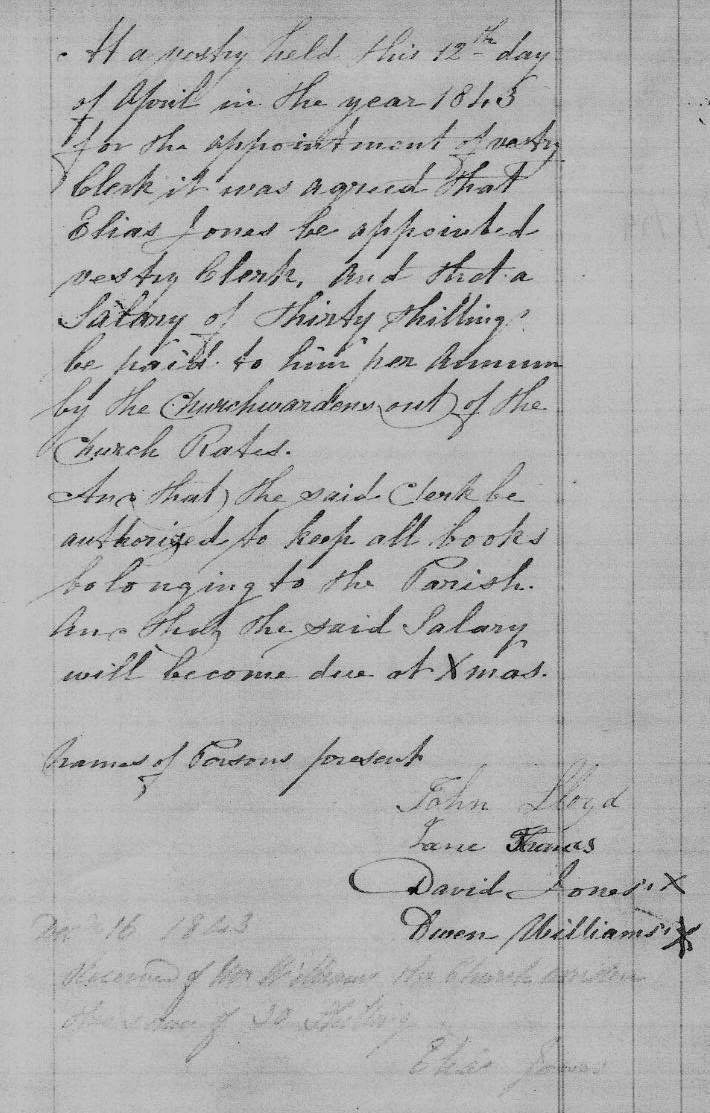 At a vestry held this 12th day
of April in the year 1843
for the appointment of vestry
Clerk it was agreed that
Elias Jones be appointed
vestry Clerk, And that a
Salary of thirty shillings
be paid to him per Annum
by the Churchwardens out of the
Church Rates.
And that the said Clerk be
authorized to keep all books
belonging to the Parish.
And that the said Salary
will become due at Xmas.
Names of Persons present
John Lloyd
Jane
David Jones X
Owen Williams X
Decr 16 1843
Received of Mr Williams the Church warden
the sum of 30 Shilling
Elias Jones